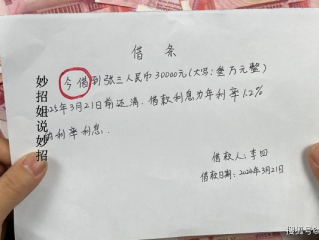 借条
今借到张三人民币30000元(大写:叁万元整)
25年3月21日前还清,借款利息为年利率12%
利率利息.
借款人:李四
借款日期:2024年3月21日
妙招姐说妙招
搜狐号@